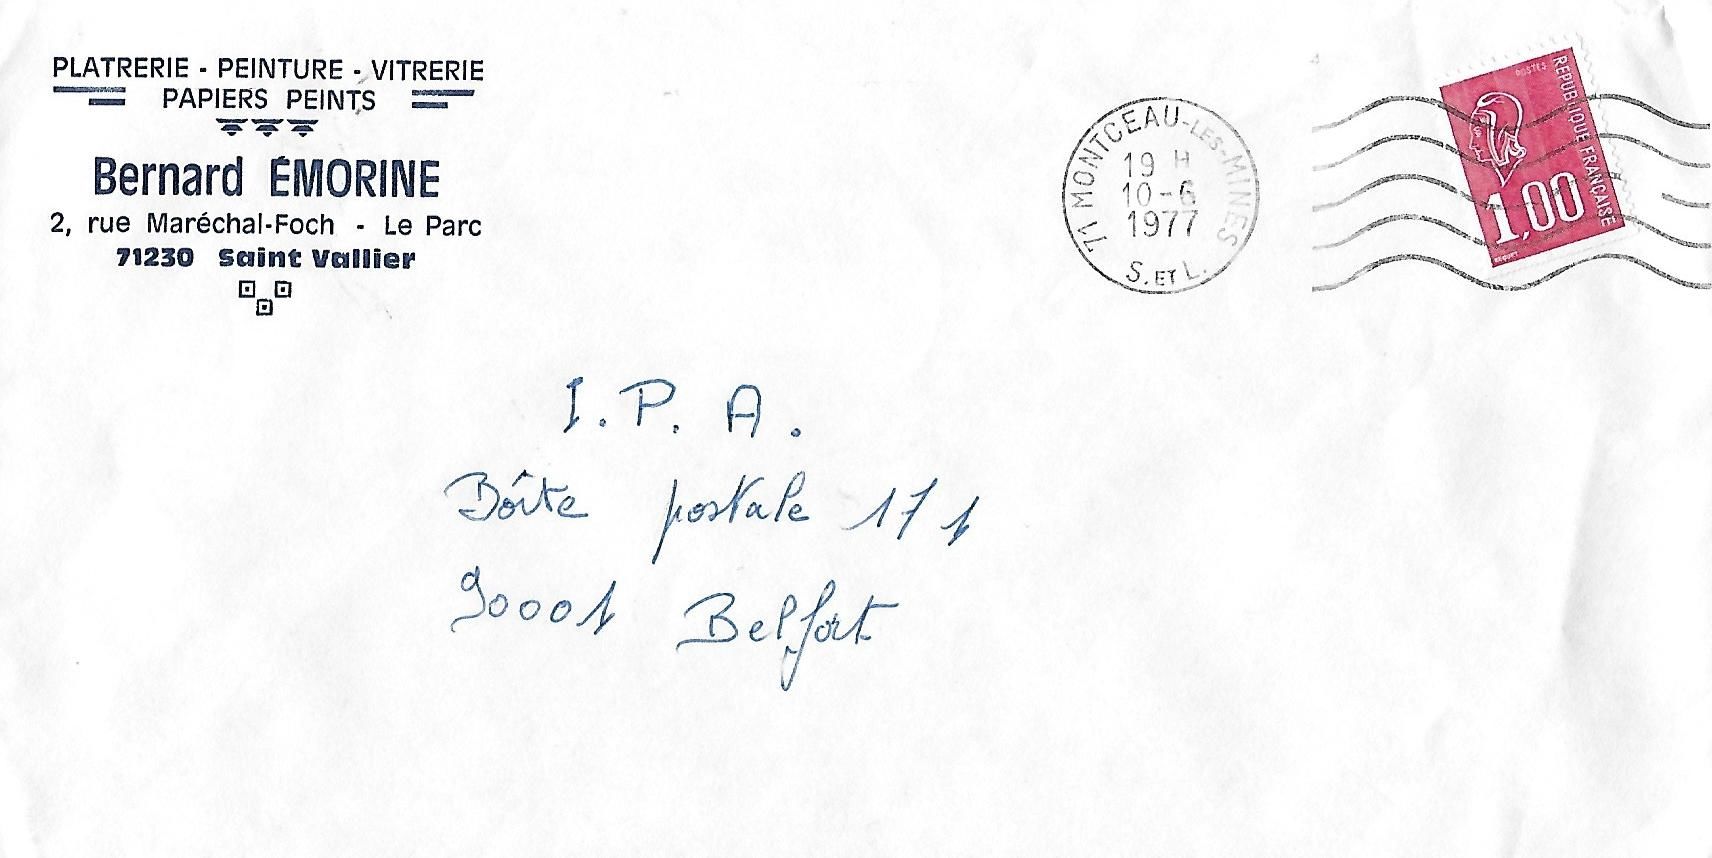 PLATRERIE - PEINTURE - VITRERIE
PAPIERS PEINTS
Bernard ÉMORINE
2, rue Maréchal-Foch - Le Parc
71230 Saint Vallier
71 MONTCEAU-LES-MINES
19 H
10-6
1977
S. ET L.
POSTES
REPUBLIQUE FRANÇAISE
1,00
BEQUET
I. P. A.
Boîte postale 171
90001 Belfort